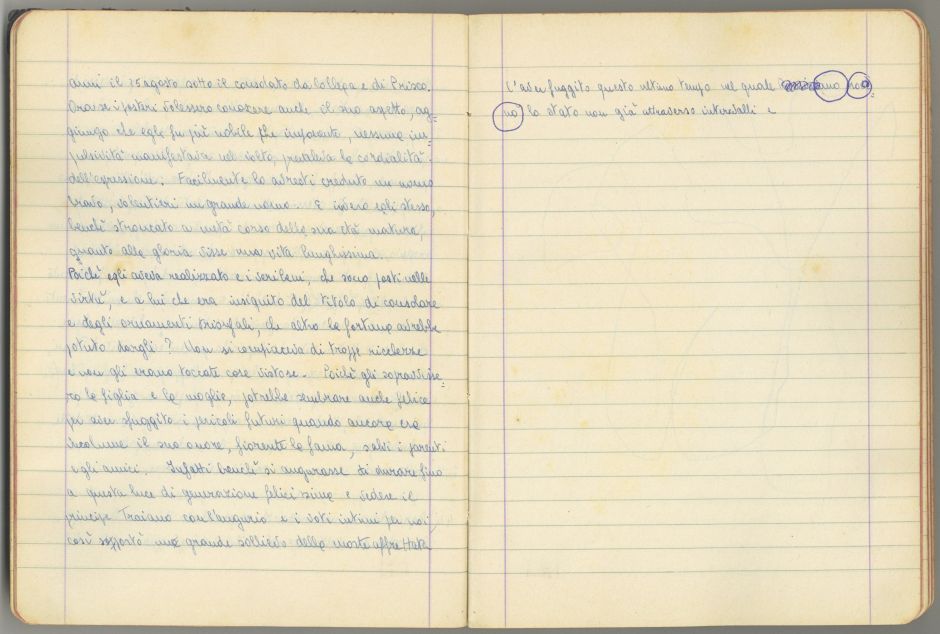 anni il 25 agosto sotto il consolato da Collega e di Prisco.
Ora se i posteri volessero conoscere anche il suo aspetto, ag
giungo che egli fu più nobile che imponente, nessuna im
pulsività manifestava nel volto, prevaleva la cordialità
dell'espressione. Facilmente lo avresti creduto un uomo
bravo, volentieri un grande uomo. E invero egli stesso,
benchè stroncato a metà corso della sua età matura,
quanto alla gloria visse una vita lunghissima.
Poichè egli aveva realizzato e i veri beni, che sono posti nelle
virtù, e a lui che era insignito del titolo di consolare
e degli ornamenti trionfali, che altro la fortuna avrebbe
potuto dargli? Non si compiaceva di troppe ricchezze
e non gli erano toccate cose vistose. Poichè gli sopravvisse
ro la figlia e la moglie, potrebbe sembrare anche felice
per aver sfuggito i pericoli futuri quando ancora era
incolume il suo onore, fiorente la fama, salvi i parenti
e gli amici. Infatti benchè si augurasse di durare fino
a questa luce di generazione felicissima e vedere il
principe Traiano con l'augurio e i voti intimi per noi,
così sopportò una grande sollievo della morte affrettata
L'aver fuggito questo ultimo tempo nel quale
lo stato non già attraverso intervalli e